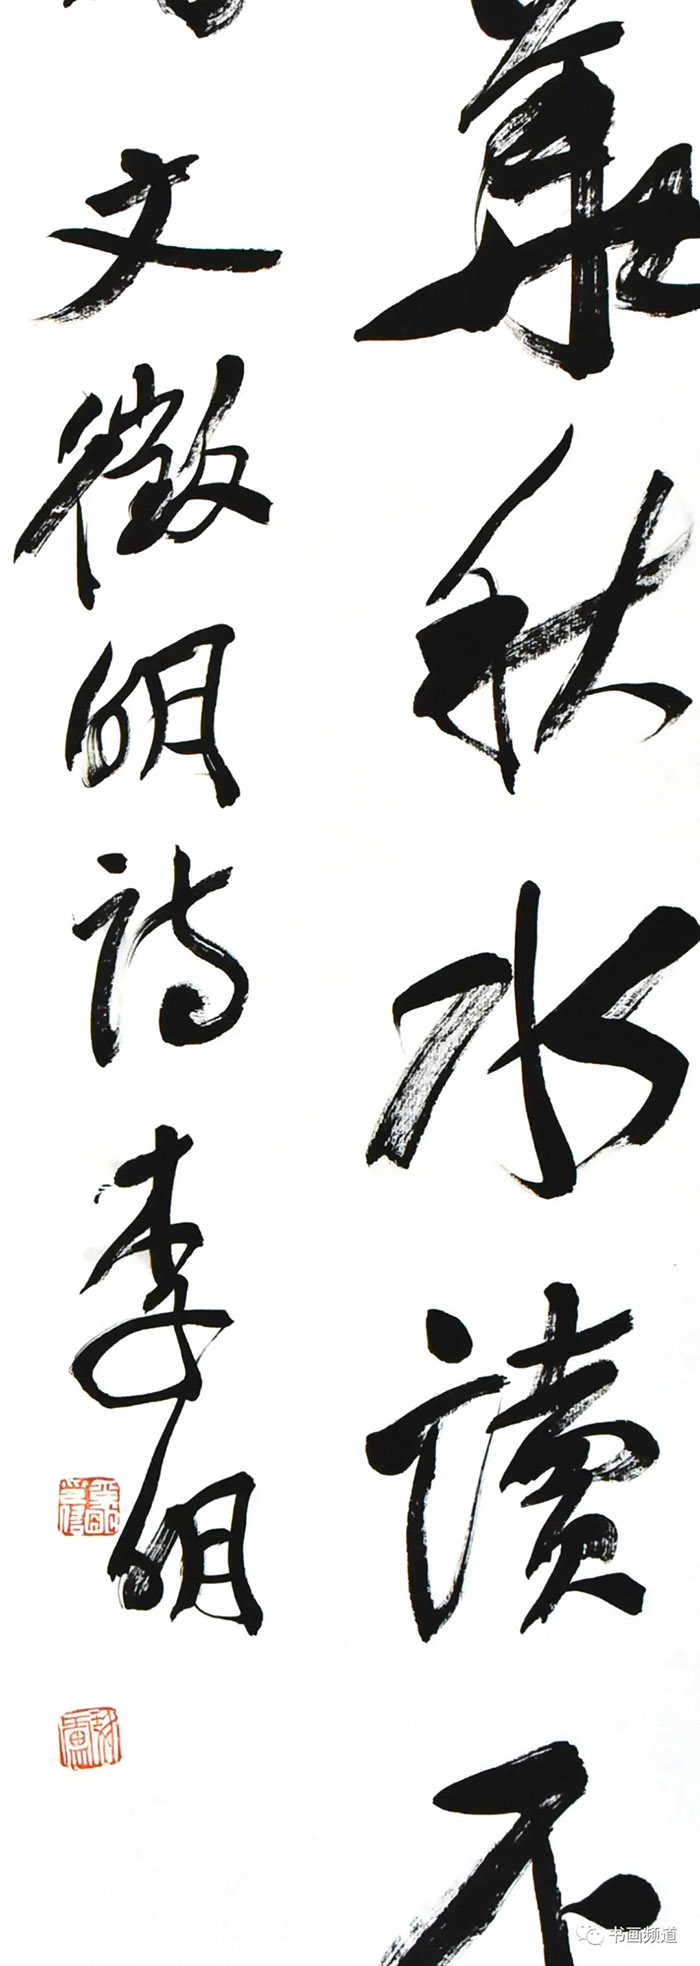 秋水讀不
文徵明詩李明
书画频道